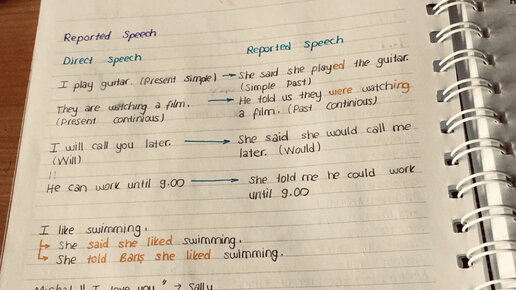 Reported Speech
Direct Speech
Reported Speech
I play guitar. (Present Simple) → She said she played the guitar.
(Simple Past)
They are watching a film. → He told us they were watching
(Present continious) a film. (Past continious)
I will call you later. → She said she would call me
(Will) later. (Would)
He can work until 9.00 → She told me he could work
until 9.00
I like swimming.
↳ She said she liked swimming.
↳ She told Barış she liked swimming.
Michal " I love you " → Sally